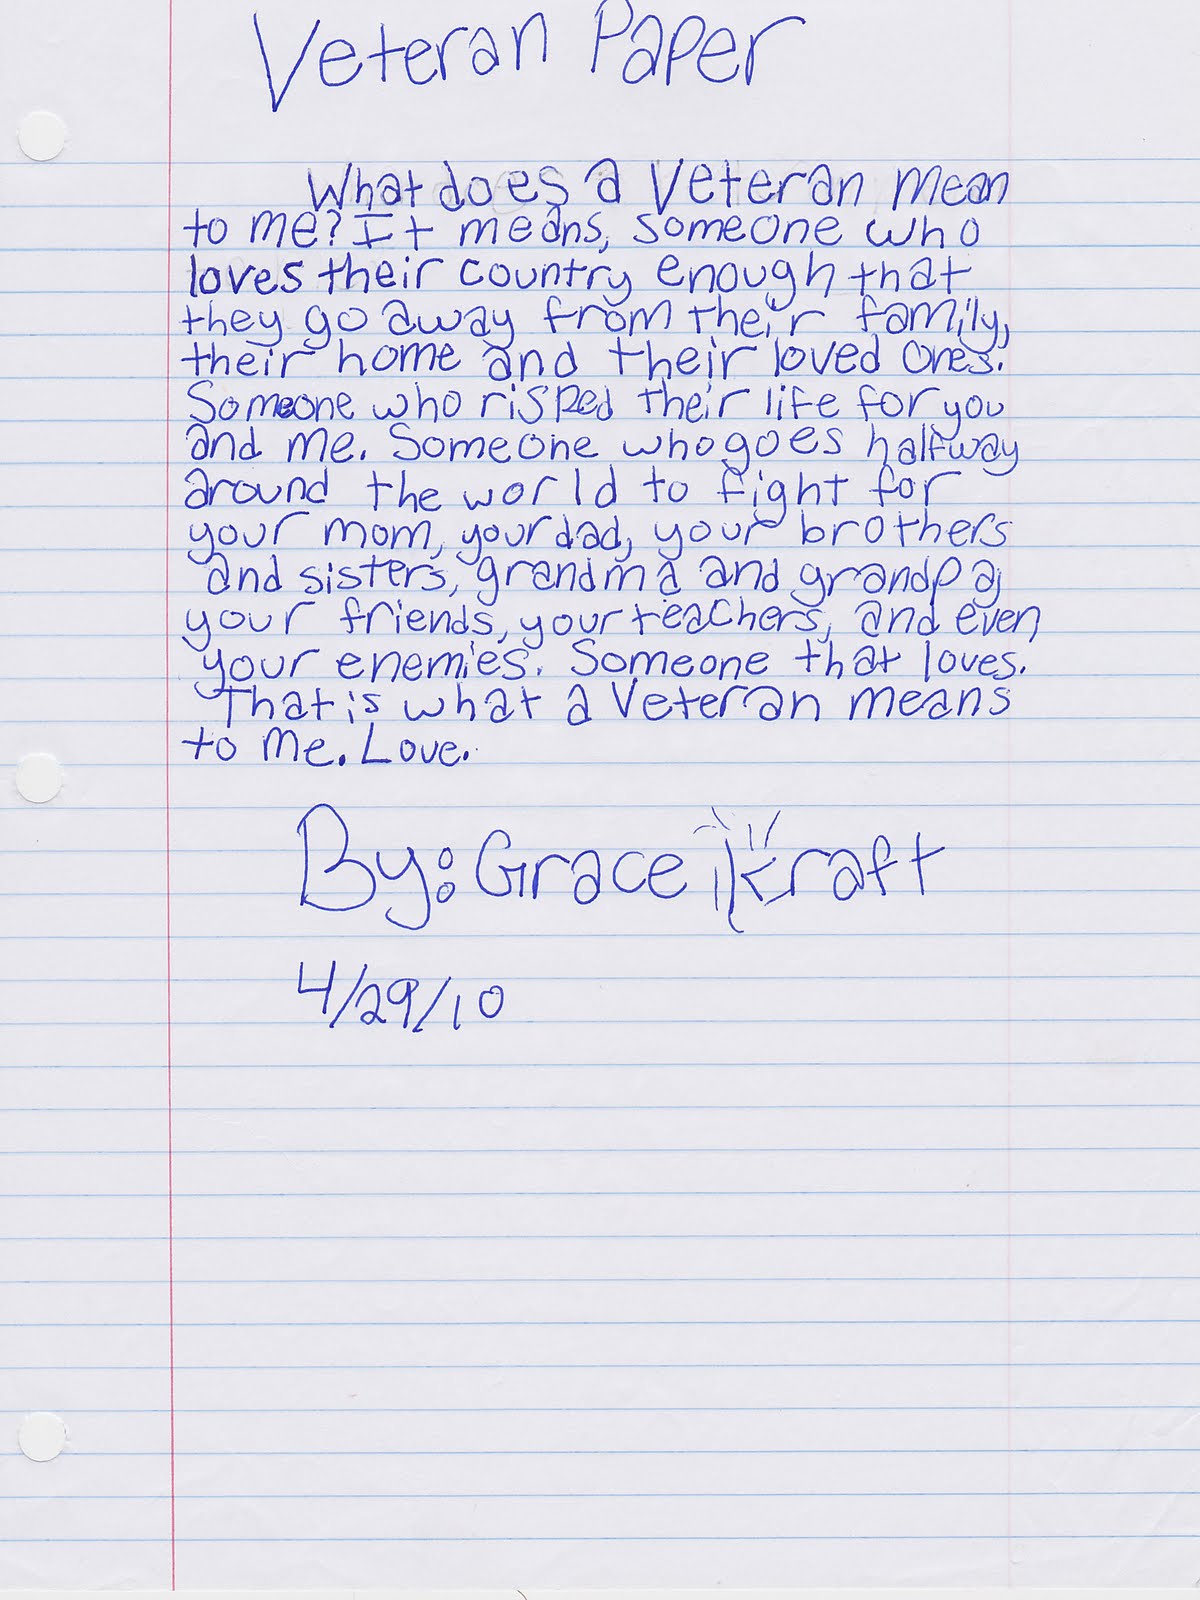 Veteran Paper
What does a Veteran mean
to me? It means, someone who
loves their country enough that
they go away from their family,
their home and their loved ones.
Someone who risped their life for you
and me. Someone who goes halfway
around the world to fight for
your mom, your dad, your brothers
and sisters, grandma and grandpa,
your friends, your teachers, and even
your enemies. Someone that loves.
That is what a Veteran means
to me. Love.
By: Grace Kraft
4/29/10